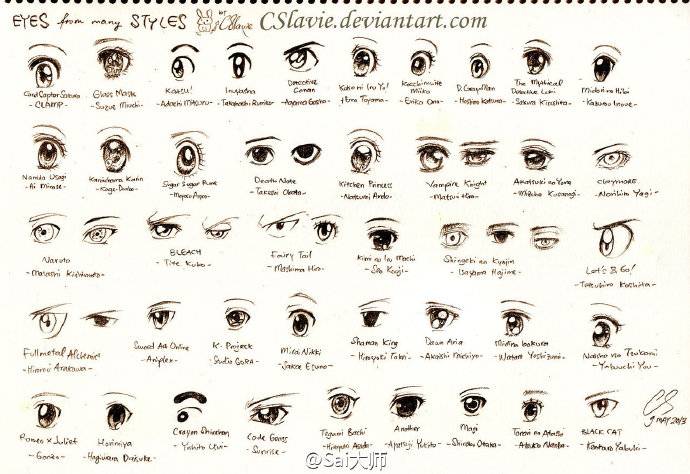 EYES from many STYLES by CSlavie CSlavie.deviantart.com
Card Captor Sakura
- CLAMP -
Glass Mask
- Suzue Miuchi -
Katsu!
- Adachi Mitsuru -
Inuyasha
- Takahashi Rumiko -
Detective
Conan
- Aoyama Gosho -
Kimi ni Iru Yo!
- Ema Toyama -
Kocchimuite
Miiko
- Eriko Ono -
D. Gray Man
- Hoshino Katsura -
The Mythical
Detective Loki
- Sakura Kinoshita -
Midori no Hibi
- Kazuro Inoue -
Naruda Usagi
- Ai Minase -
Kamichama Karin
- Koge-Donbo -
Sugar Sugar Rune
- Moyoco Anno -
Death Note
- Takeshi Obata -
Kitchen Princess
- Natsumi Ando -
Vampire Knight
- Matsuri Hino -
Akatsuki no Yona
- Mizuho Kusanagi -
CLAYMORE
- Norihiro Yagi -
Naruto
- Masashi Kishimoto -
BLEACH
- Tite Kubo -
Fairy Tail
- Mashima Hiro -
Kimi ni Iru Machi
- Seo Kouji -
Shingeki no Kyojin
- Isayama Hajime -
Let's & Go!
- Tetsuhiro Koshita -
Fullmetal Alchemist
- Hiromu Arakawa -
Sword Art Online
- Aniplex -
K-Project
- Studio GoRA -
Mirai Nikki
- Sakae Esuno -
Shaman King
- Hiroyuki Takei -
Dawn Aria
- Akaishi Michiyo -
Mirina bokura
- Wataru Yoshizumi -
Naisho no Tsubomi
- Yabuuchi Yuu -
Romeo x Juliet
- Gonzo -
Horimiya
- Hagiwara Daisuke -
Crayon Shinchan
- Yoshito Usui -
Code Geass
- Sunrise -
Tegami Bachi
- Hiroyuki Asada -
Another
- Ayatsuji Yukito -
Magi
- Shinobu Ohtaka -
Tonari no Atashi
- Atsuko Nanba -
BLACK CAT
- Kentaro Yabuki -
CS
9 MAY 2013
@Sai大师